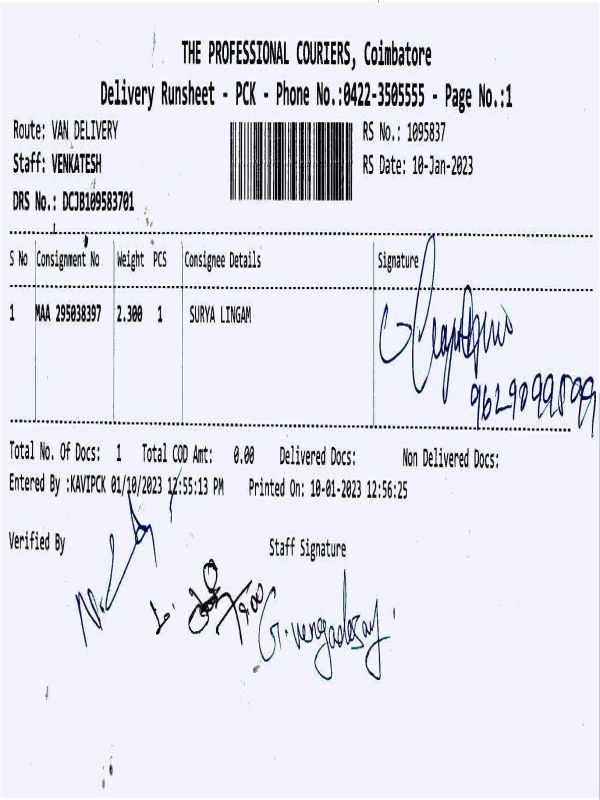 THE PROFESSIONAL COURIERS, Coimbatore
Delivery Runsheet - PCK - Phone No.:0422-3505555 - Page No.:1
Route: VAN DELIVERY
RS No.: 1095837
Staff: VENKATESH
RS Date: 10-Jan-2023
DRS No.: DCJB109583701
S No Consignment No Weight PCS Consignee Details Signature
1 MAA 295038397 2.300 1 SURYA LINGAM
9629099899
Total No. Of Docs: 1 Total COD Amt: 0.00 Delivered Docs: Non Delivered Docs:
Entered By :KAVIPCK 01/10/2023 12:55:13 PM Printed On: 10-01-2023 12:56:25
Verified By Staff Signature